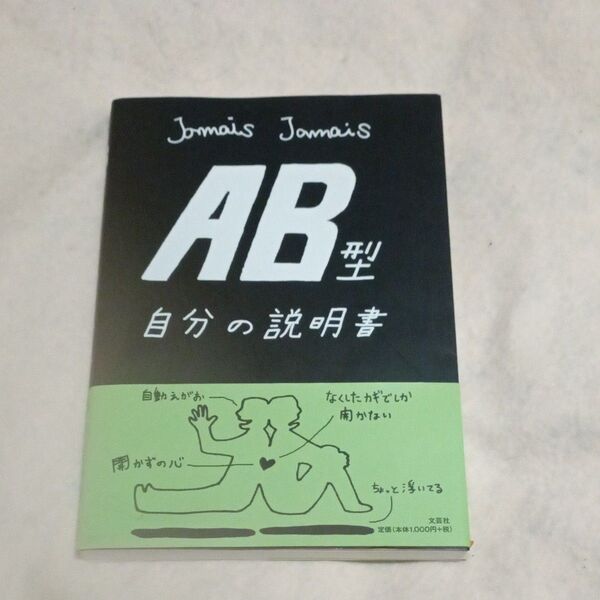 Jamais Jamais
AB型
自分の説明書
自動えがお
なくしたカギでしか
開かない
開かずの心
ちょっと浮いてる
文芸社
定価(本体1,000円+税)